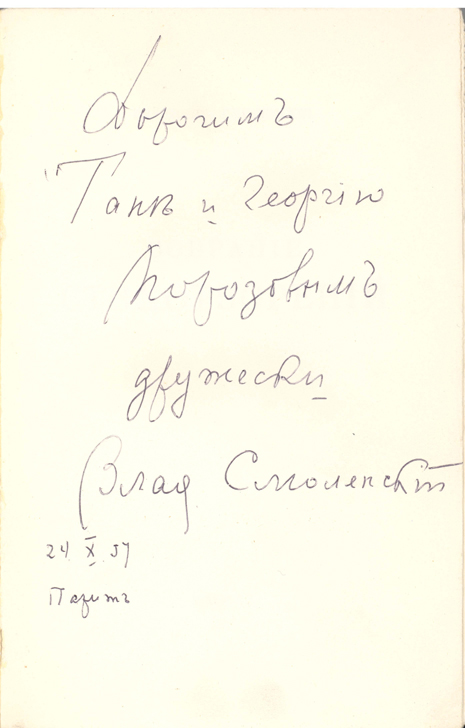 Дорогимъ
Танѣ и Георгію
Морозовымъ
дружески
Влад Смоленскій
24 X 57
Парижъ